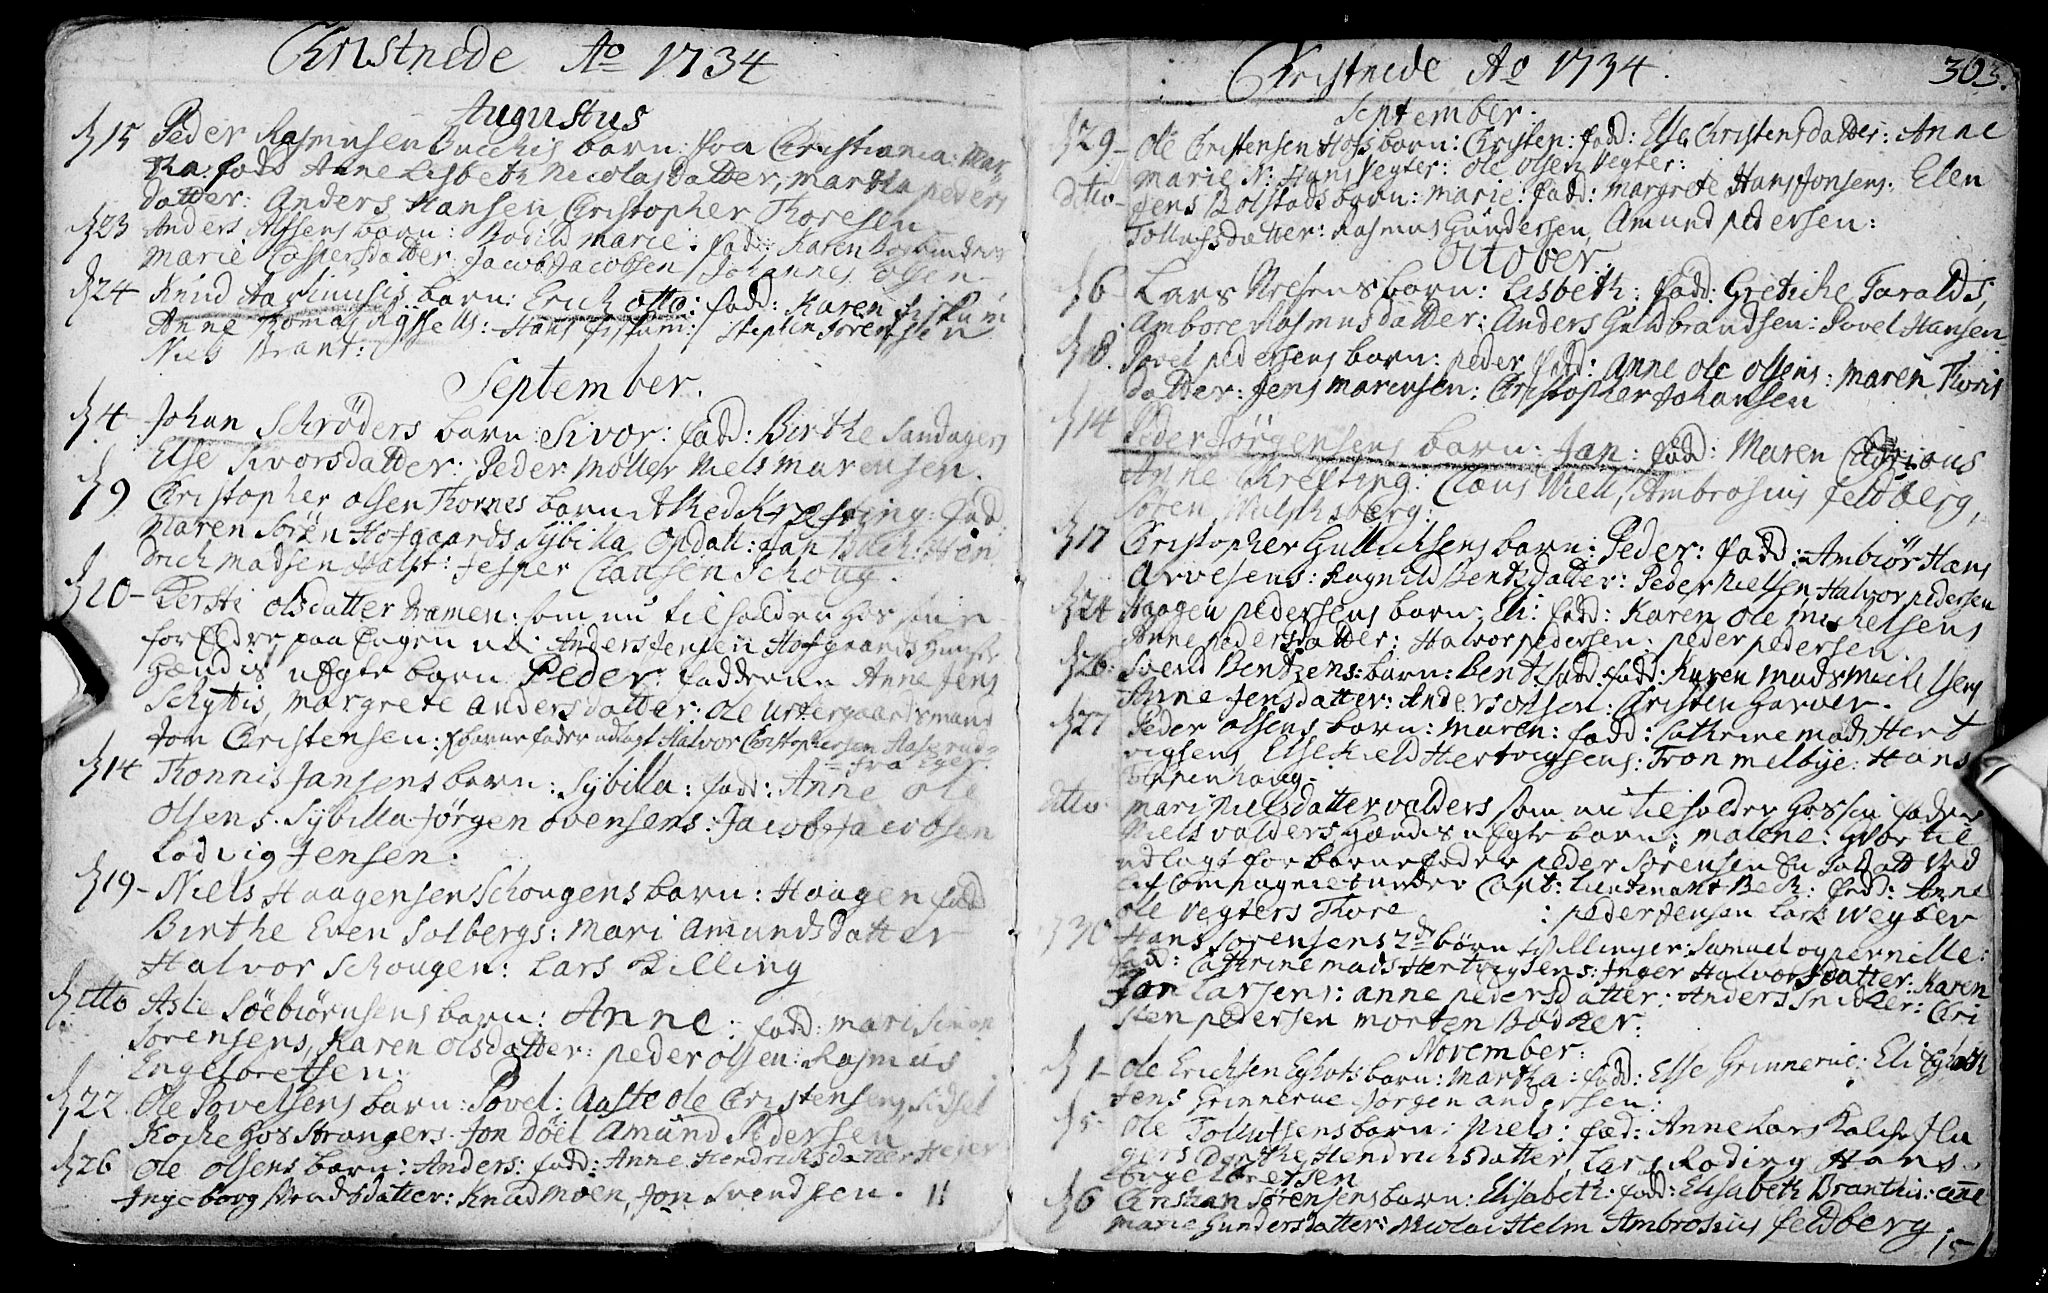 Christnede Ao 1734
Augustus
d 15 Peder Rasmusen barn: fra Christiania: Mar
tha: fadd Anne Lisbeth Nicolasdatter, martha peders
datter: Anders Hansen, Christopher Thoresen
d 23 Anders Alfsens barn: Bodild marie: fadd: Karen
marie Caspersdatter. Jacob Jacobsen, Johannes
d 24 Knud barn: Erich otto: fadd: Karen fiskum
Anne Thomas Hans fiskum: Stephen Sørensen
Niels Brant:
September.
d 4. Johan Schrøders barn: Sivor: fadd: Birthe Sandagers
Else Sivorsdatter: Peder Møller Niels marensen.
d 9 Christopher olsen Thornes barn fadd:
Maren Søren Hofgaards Sybilla Opdall: Jan Bach: Hen
drich madsen Halst: Jesper Clausen Schoug.
d 20- Kersti olsdatter Dramen: som nu til holder hos sine
forEldre paa Engen ved Anders Jensen Hofgaards
hændis uEgte barn Peder: fadderne Anne Jens
Schyttis, margrete andersdatter: ole
Jon Christensen: barnefader udlagt Halvor Christophersen
fra Eger.
d 14 Thonnis Jansens barn: Sybilla: fadd: Anne Ole
Olsens. Sybilla Jørgen ovensens: Jacob Jacobsen
Lodvig Jensen:
d 19- Niels Haagensen Schougens barn: Haagen fadd
Birthe Even Solbergs: Mari Amundsdatter
Halvor Schougen: Lars Killing
d ditto Asle Søebiørnsens barn: Anne: fadd: mari Simon
Sørensens, Karen olsdatter: peder olsen: Rasmus
Engebretsen:
d 22 Ole Povelsens barn: Povel: Aaste ole Christensens, Sidsel
Koche hos Strangers. Jon Døel Amund Pedersen
d 26 Ole olsens barn: Anders: fadd: Anne Hendrichsdatter
Ingeborg datter: Knud moen, Jon Svendsen. 11
Christnede Ao 1734. 303.
September:
d 29- Ole Christensen Hofs barn: Christen: fadd: Else Christensdatter: Anne
marie N: Hans Vegter: ole olsen Vegter:
ditto- Jens Bolstads barn: marie: fadd: margrete Hans Jonsens. Elen
Tollufsdatter: Rasmus Gundersen, Amund pedersen:
October.
d 6- Lars barn: Lisbeth: fadd: Gretiche Taralds,
Ambore Rasmusdatter: Anders Guldbrandsen: Povel Hansen
d 8. Povel pedersens barn: peder fadd: Anne ole olsens: maren Thoris
datter: Jens marensen: Christopher Johansen
d 14 Peder Jørgensens barn: Jan: fadd: Maren
Anne Krefting: Claus Ambrosius feldberg,
Søren
d 17 Christopher Gullichsens barn: Peder: fadd: Ambiør Hans
Arvesens: Ragnild Bentsdatter: Peder Nielsen Halvor pedersen
d 24 Haagen pedersens barn: Eli: fadd: Karen Ole michelsens
Anne pedersdatter: Halvor pedersen: peder pedersen.
d 26. Svend Bentzens: barn: Bent fadd: Karen mads michelsens
Anne Jensdatter: Anders olsen: Christen Garver.
d 27 Peder olsens barn: maren: fadd: Cathrine mads Hert
vigsens Else Kield Hertvigsens: Tron melbye: Hans
Tinnenhaug-
ditto. mari Nielsdatter valders som nu tilholder hos sin fader
Niels valders hændis uEgte barn: malene: hvortil
udlagt for barnefader peder Sørensen En Soldatt ved
Compagniet under Capt: Lieutenant Bech: fadd: Anne
ole Vegters Thore : peder Jensen Lars Wegter
d 30 Hans Sørensens 2de børn tvillinger: Samuel og pernille:
fadd: Cathrine mads Hertvigsens: Inger Halvorsdatter: Karen
Jan Larsens: anne pedersdatter: Anders Snidker: Chri
sten pedersen morten Bødker:
November:
d 1- Ole Erichsen Eghots barn: Martha: fadd: Else Grinnerue: Eli
Jens Grinnerue Jørgen andersen:
d 5- Ole Tollufsens barn: Niels: fad: Anne Lars
Dorthe Hendrichsdatter, Lars Roding Hans
d 6 Christian Sørensens barn: Elisabeth: fadd: Elisabeth Branthis: anne
marie Gundersdatter: Nicolai Helm Ambrosius feldberg
15